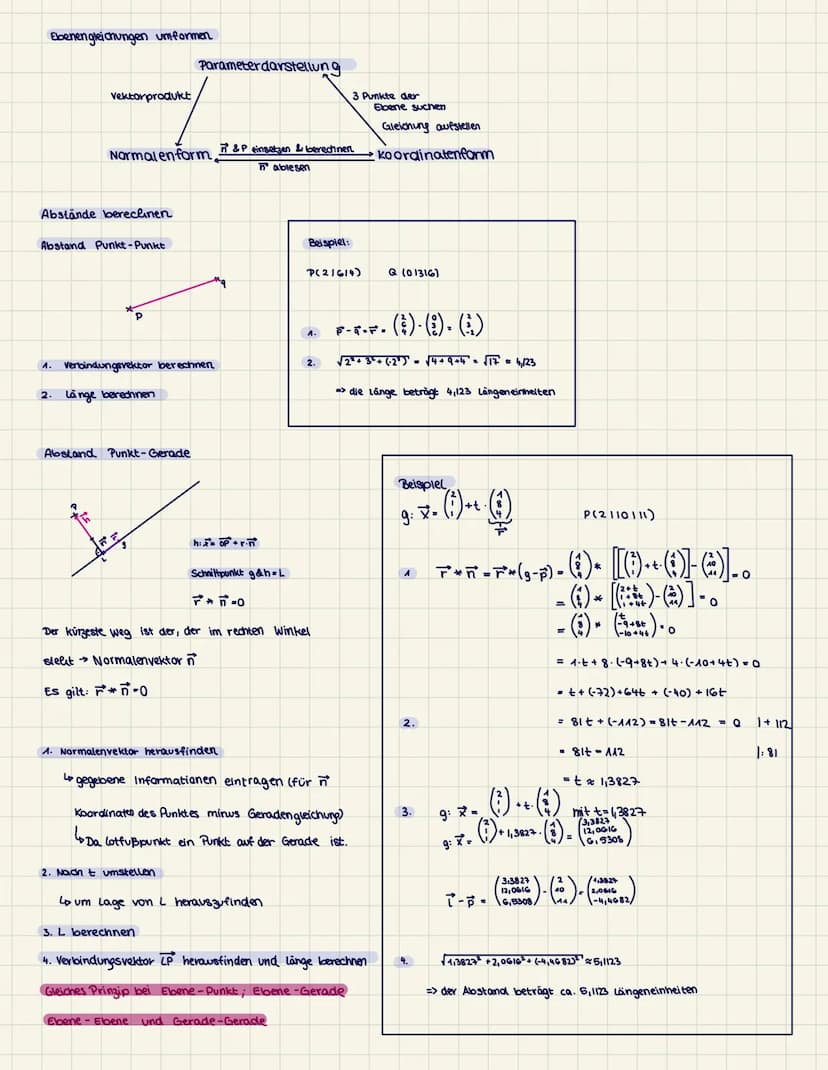 Ebenengleichungen umformen
Parameterdarstellung
Vektorprodukt
3 Punkte der
Ebene suchen
Gleichung aufstellen
Normalenform
n⃗ & P einsetzen & berechnen
Koordinatenform
n⃗ ablesen
Abstände berechnen
Abstand Punkt-Punkt
P
q
1. Verbindungsvektor berechnen
2. Länge berechnen
Beispiel:
P(2|6|4) Q (0|3|6)
1. p⃗ - q⃗ = r⃗ = (2 6 4) - (0 3 6) = (2 3 -2)
2. √2² + 3² + (-2²) = √4 + 9 + 4 = √17 ≈ 4,123
=> die länge beträgt 4,123 Längeneinheiten
Abstand Punkt-Gerade
h: x⃗ = OP⃗ + r · n⃗
Schnittpunkt g & h = L
r⃗ * n⃗ = 0
Der kürzeste Weg ist der, der im rechten Winkel
steht → Normalenvektor n⃗
Es gilt: r⃗ * n⃗ = 0
1. Normalenvektor herausfinden
↳ gegebene Informationen eintragen (für n⃗
Koordinaten des Punktes minus Geradengleichung)
↳ Da Lotfußpunkt ein Punkt auf der Gerade ist.
2. Nach t umstellen
↳ um Lage von L herauszufinden
3. L berechnen
4. Verbindungsvektor LP⃗ herausfinden und länge berechnen
Gleiches Prinzip bei Ebene-Punkt; Ebene-Gerade
Ebene - Ebene und Gerade-Gerade
Beispiel
g: x⃗ = (2 1 1) + t · (1 8 4) P(2|10|11)
r⃗
1 r⃗ * n⃗ = r⃗ * (g - p⃗) = (1 8 4) * [[(2 1 1) + t · (1 8 4)] - (2 10 11)] = 0
= (1 8 4) * [(2+t 1+8t 1+4t) - (2 10 11)] = 0
= (1 8 4) * (t -9+8t -10+4t) = 0
= 1·t + 8·(-9+8t) + 4·(-10+4t) = 0
= t + (-72) + 64t + (-40) + 16t
2. = 81t + (-112) = 81t - 112 = 0 |+ 112
= 81t = 112 |: 81
= t ≈ 1,3827
3. g: x⃗ = (2 1 1) + t · (1 8 4) mit t = 1,3827
g: x⃗ = (2 1 1) + 1,3827 · (1 8 4) = (3,3827 12,0616 6,5308)
l⃗ - p⃗ = (3,3827 12,0616 6,5308) - (2 10 11) = (1,3827 2,0616 -4,4682)
4. √1,3827² + 2,0616² + (-4,4682)² ≈ 5,1123
=> der Abstand beträgt ca. 5,1123 Längeneinheiten